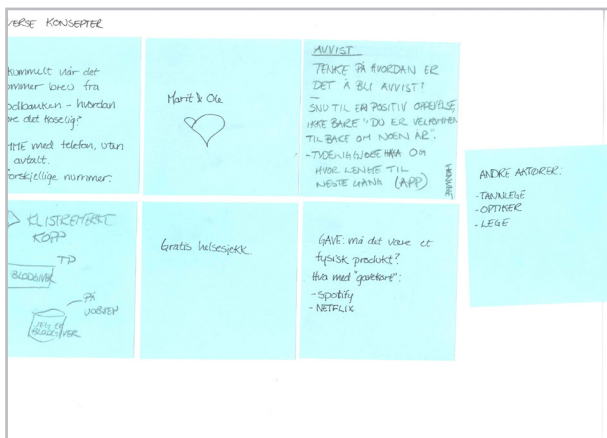 ERSE KONSEPTER
kummelt når det
ommer brev fra
odbanken - hvordan
re det koselig?
ME med telefon, uten
avtalt.
forskjellige nummer.
Marit & Ole
AVVIST
TENKE PÅ HVORDAN ER
DET Å BLI AVVIST?
SNU TIL EN POSITIV OPPLEVELSE,
IKKE BARE "DU ER VELKOMMEN
TILBAKE OM NOEN ÅR".
HVOR LENGE TIL
NESTE GANG (APP)
ANDRE AKTØRER:
- TANNLEGE
- OPTIKER
- LEGE
KLISTREMERKE
KOPP
BLODGIVER
PÅ
JOBBEN
JEG ER
BLODGIVER
Gratis helsesjekk.
GAVE: må det være et
fysisk produkt?
Hva med "gavekort":
- Spotify
- NETFLIX